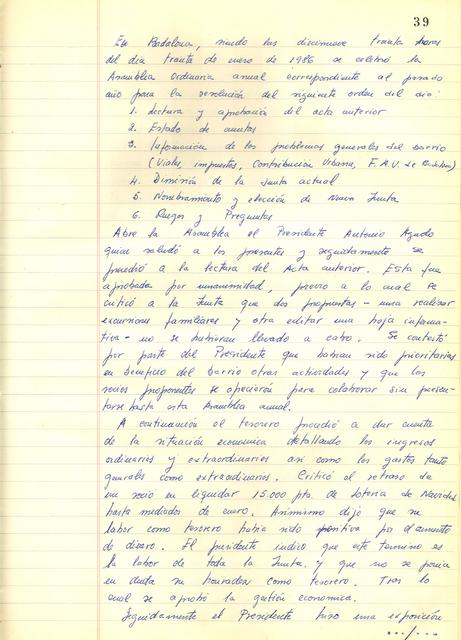 39
En Badalona, siendo las diecinueve treinta horas
del día treinta de enero de 1986 se celebró la
Asamblea Ordinaria anual correspondiente al pasado
año para la resolución del siguiente orden del día:
1. Lectura y aprobación del acta anterior
2. Estado de cuentas
3. Información de los problemas generales del barrio
(Viales, impuestos, Contribución Urbana, F.A.V. de Badalona)
4. Dimisión de la Junta actual
5. Nombramiento y elección de Nueva Junta
6. Ruegos y Preguntas
Abre la Asamblea el Presidente Antonio Agudo
quien saludó a los presentes y seguidamente se
procedió a la lectura del Acta anterior. Esta fue
aprobada por unanimidad, previo a lo cual se
criticó a la Junta que dos propuestas - una realizar
excursiones familiares y otra editar una hoja informa-
tiva - no se hubieran llevado a cabo. Se contestó
por parte del Presidente que habían sido prioritarias
en beneficio del barrio otras actividades y que los
socios proponentes se ofrecieron para colaborar sin presen-
tarse hasta esta Asamblea anual.
A continuación el tesorero procedió a dar cuenta
de la situación economica detallando los ingresos
ordinarios y extraordinarios así como los gastos tanto
generales como extraordinarios. Criticó el retraso de
un socio en liquidar 15.000 pts. de loteria de Navidad
hasta mediados de enero. Asimismo dijo que su
labor como tesorero había sido positiva por el aumento
de dinero. El presidente indicó que este termino es
la labor de toda la Junta, y que no se ponía
en duda su honradez como tesorero. Tras lo
cual se aprobó la gestión economica.
Seguidamente el Presidente hizo una exposición
../..